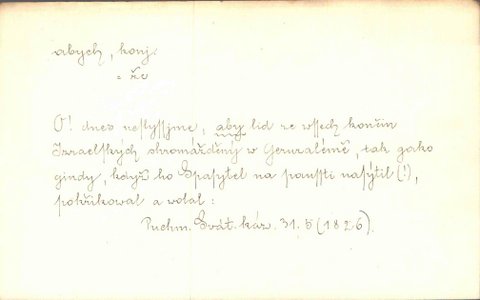 abych, konj.
že
O! dnes neslyssjme, aby lid ze wssech končin
Izraelských shromážděný w Geruzalémě, tak gako
gindy, když ho Spasytel na pausti nasýtil (!),
pokřikowal a wolal:
Puchm. Svát. káz. 31. 5 (1826).